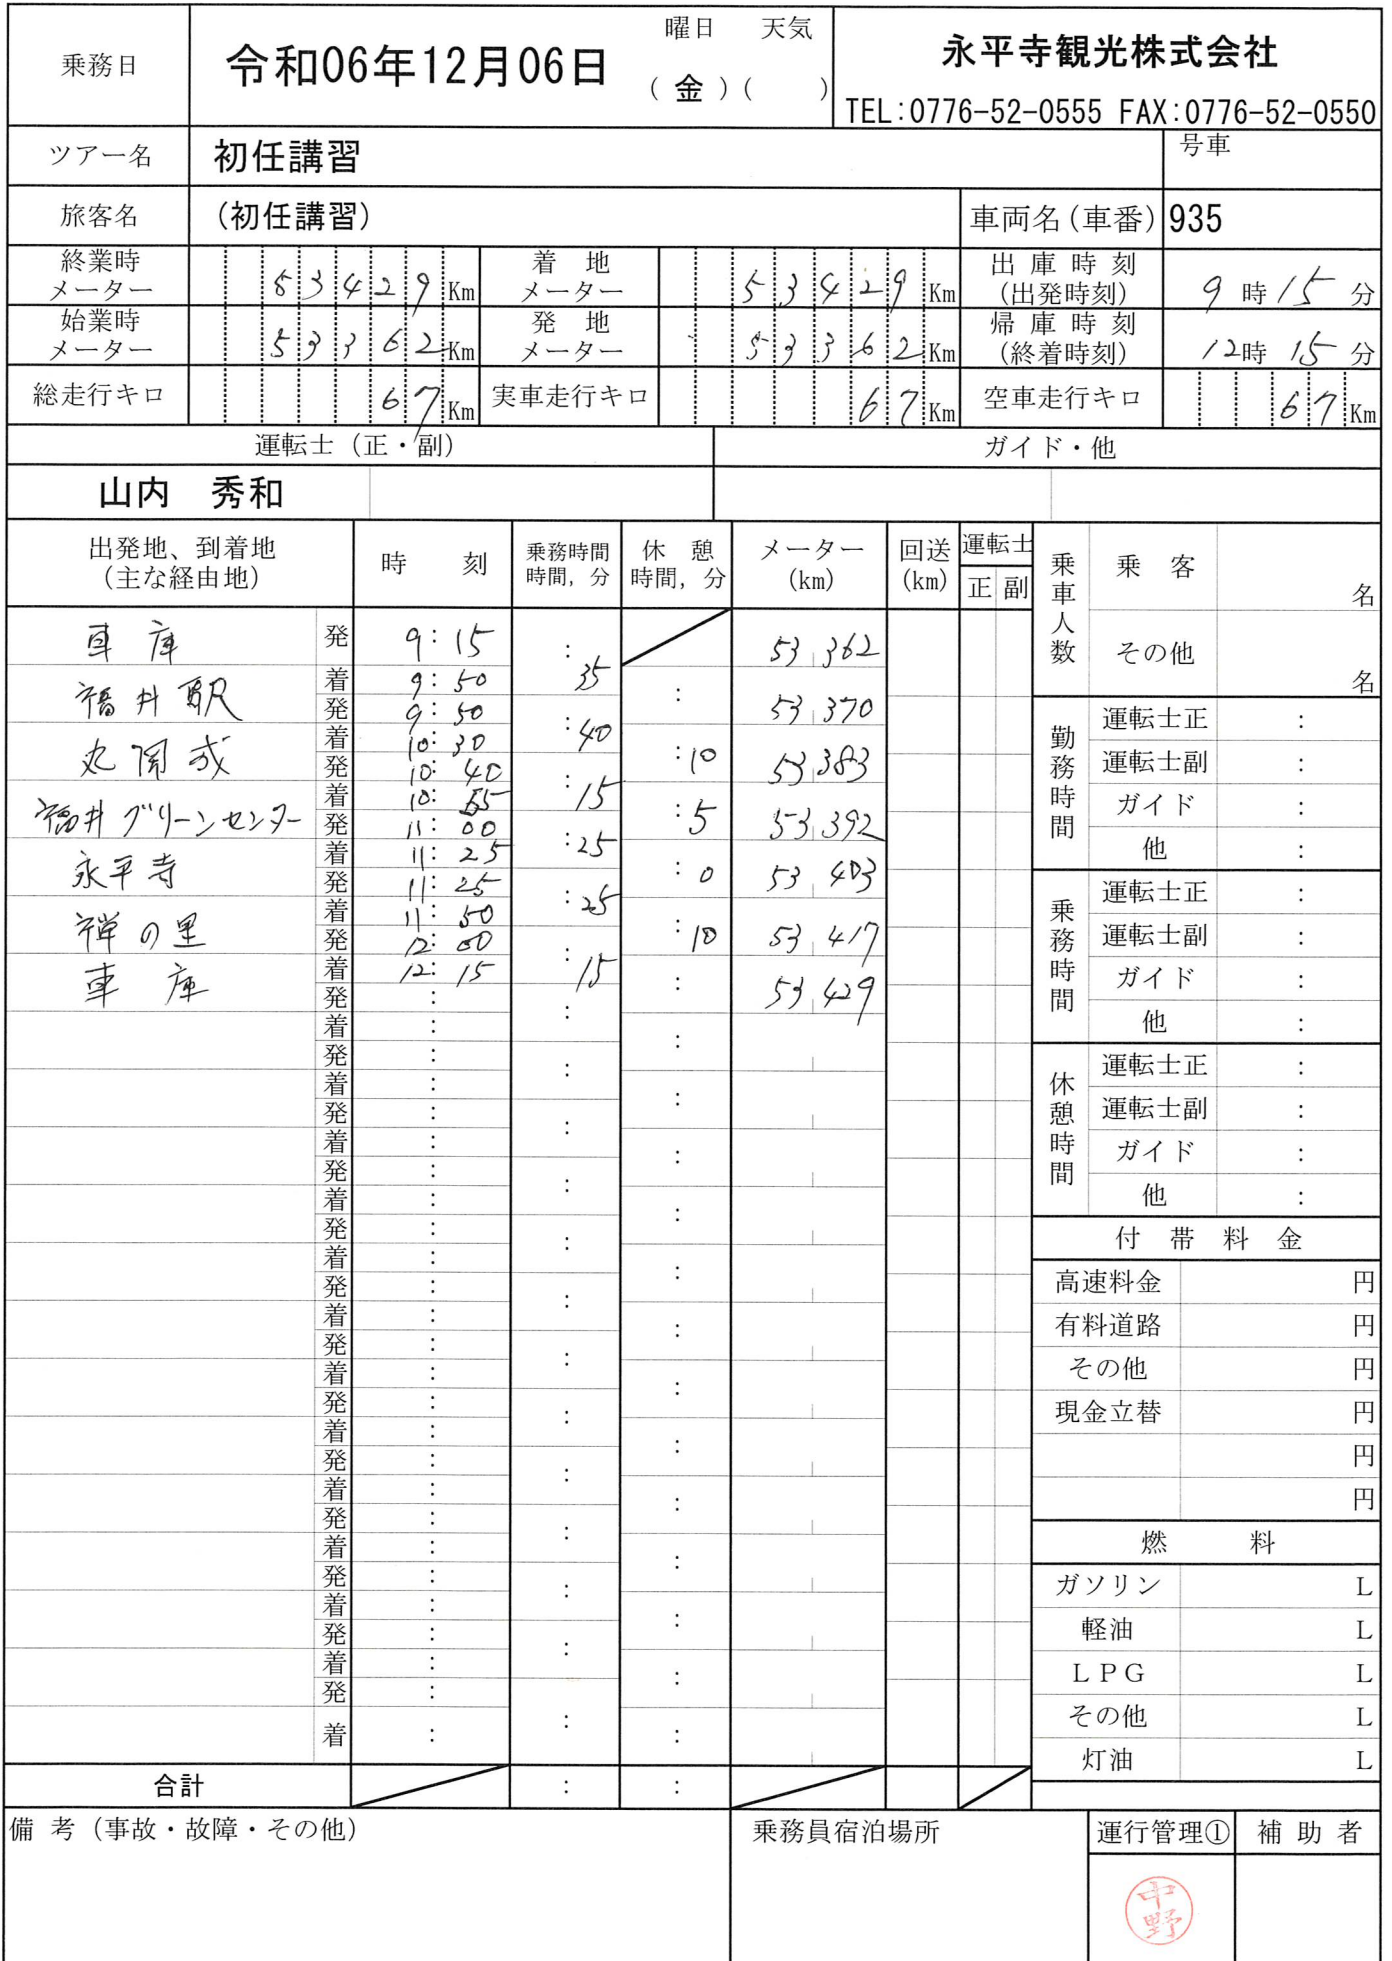 乗務日 令和06年12月06日 曜日 天気
(金)( )
永平寺観光株式会社
TEL:0776-52-0555 FAX:0776-52-0550
ツアー名 初任講習 号車
旅客名 (初任講習) 車両名(車番) 935
終業時メーター 53429 Km 着地メーター 53429 Km 出庫時刻(出発時刻) 9時15分
始業時メーター 53362 Km 発地メーター 53362 Km 帰庫時刻(終着時刻) 12時15分
総走行キロ 67 Km 実車走行キロ 67 Km 空車走行キロ 67 Km
運転士(正・副) ガイド・他
山内 秀和
出発地、到着地(主な経由地) 時刻 乗務時間 時間,分 休憩 時間,分 メーター(km) 回送(km) 運転士 正 副
車庫 発 9:15 53,362
:35
福井駅 着 9:50 発 9:50 : 53,370
:40
丸岡城 着 10:30 発 10:40 :10 53,383
:15
福井グリーンセンター 着 10:55 発 11:00 :5 53,392
:25
永平寺 着 11:25 発 11:25 :0 53,403
:25
禅の里 着 11:50 発 12:00 :10 53,417
:15
車庫 着 12:15 発 : : 53,429
着 : 発 :
着 : 発 :
着 : 発 :
着 : 発 :
着 : 発 :
着 : 発 :
着 : 発 :
着 : 発 :
着 : 発 :
着 : 発 :
着 : 発 :
着 : 発 :
着 :
合計 : :
乗車人数 乗客 名
その他 名
勤務時間 運転士正 :
運転士副 :
ガイド :
他 :
乗務時間 運転士正 :
運転士副 :
ガイド :
他 :
休憩時間 運転士正 :
運転士副 :
ガイド :
他 :
付帯料金
高速料金 円
有料道路 円
その他 円
現金立替 円
円
円
燃料
ガソリン L
軽油 L
LPG L
その他 L
灯油 L
備考(事故・故障・その他) 乗務員宿泊場所 運行管理① 補助者
中野